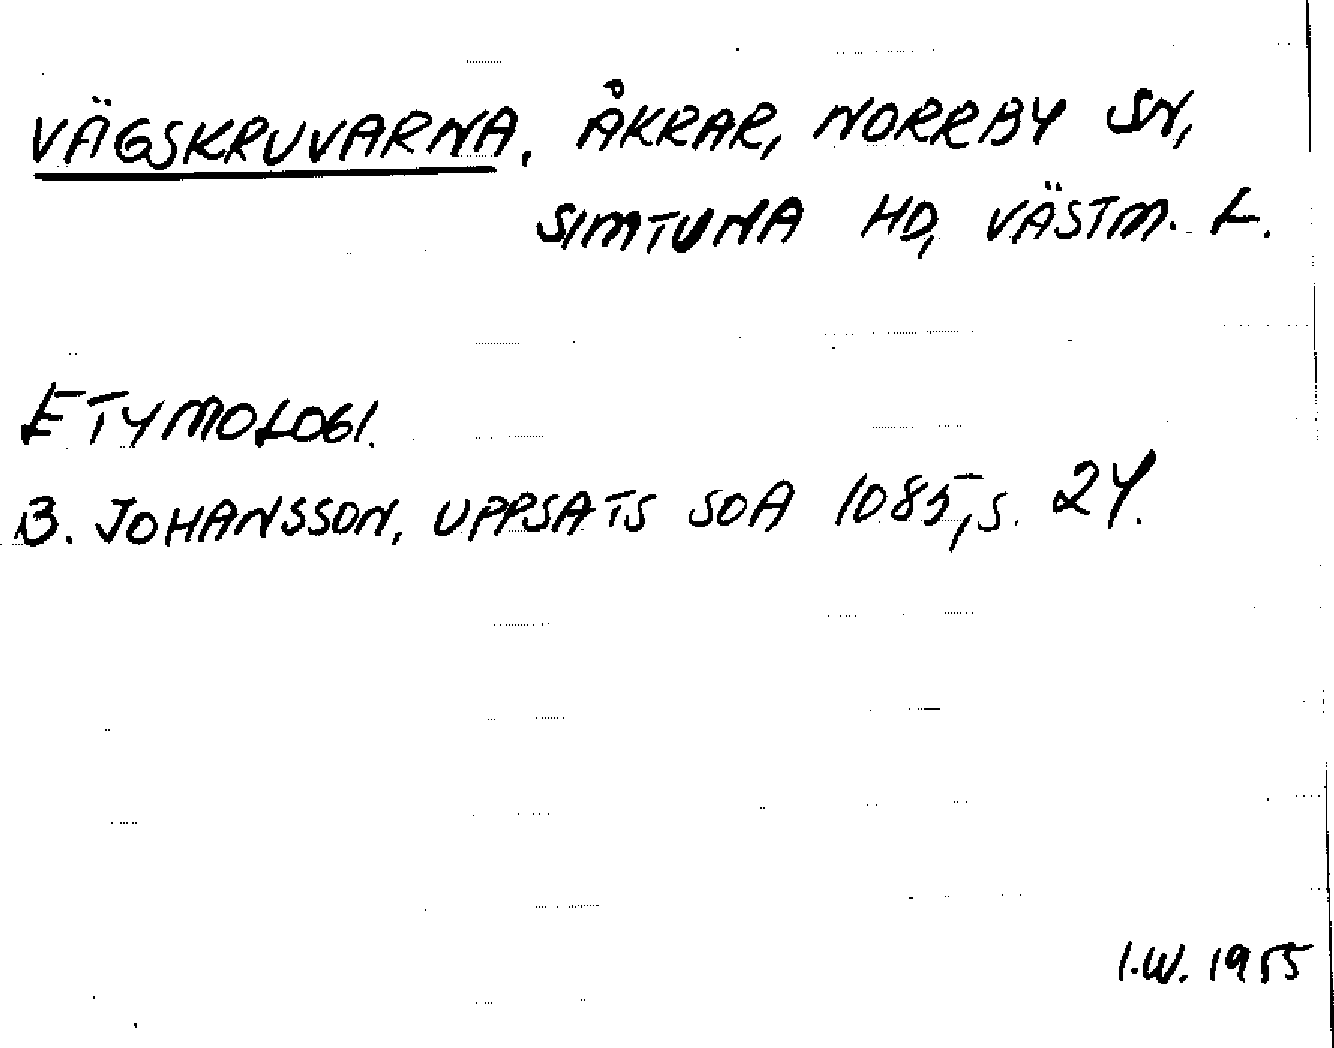 VÄGSKRUVARNA, ÅKRAR, NORRBY SN,
SIMTUNA HD, VÄSTM. L.
ETYMOLOGI.
B. JOHANSSON, UPPSATS SOA 1085, S. 24.
I.W. 1955